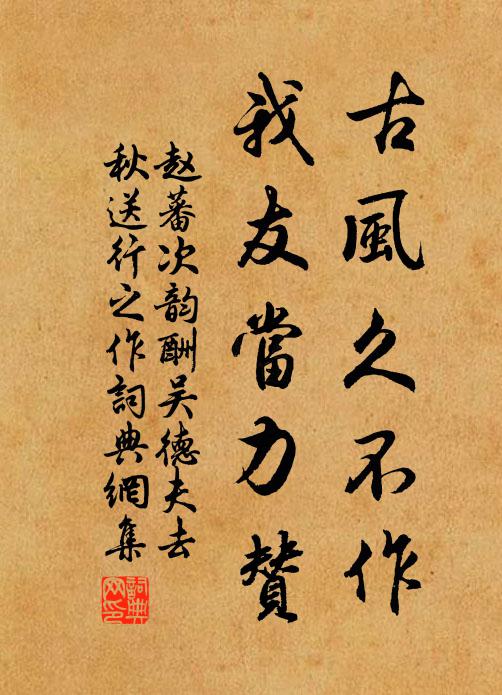 古風久不作
我友當力贊
赵蕃次韵酬吴德夫去
秋送行之作詞典網集
詞典网印